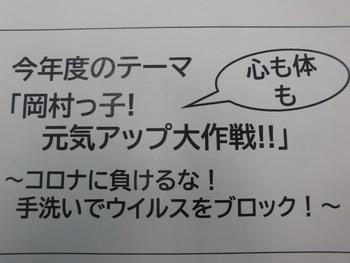 今年度のテーマ
心も体
も
「岡村っ子!
元気アップ大作戦!!」
～コロナに負けるな!
手洗いでウイルスをブロック!～